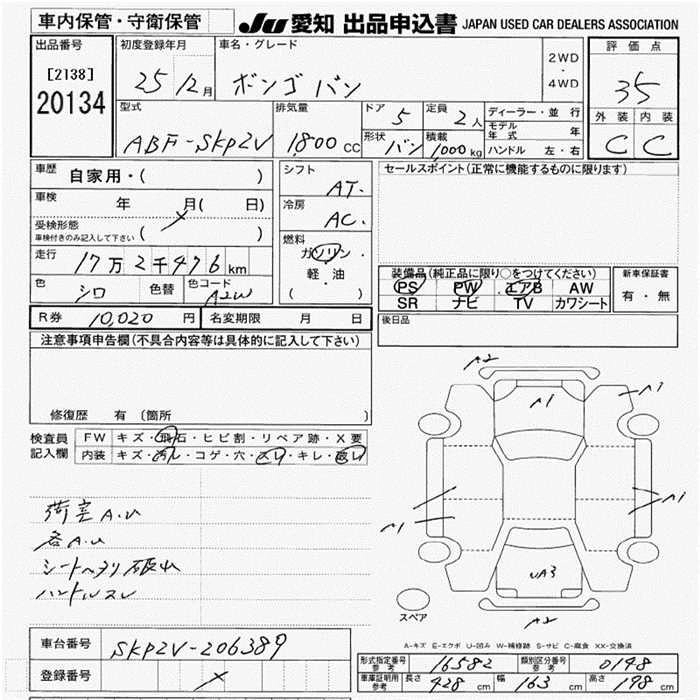 車内保管・守衛保管
JU 愛知 出品申込書 JAPAN USED CAR DEALERS ASSOCIATION
出品番号
[2138]
20134
初度登録年月
25 12月
車名・グレード
ボンゴ バン
2WD
・
4WD
評価点
3.5
外装 内装
C C
型式
ABF-SKP2V
排気量
1,800 CC
ドア 5
形状 バン
定員 2人
積載 1,000 kg
ディーラー・並行
モデル年式 年
ハンドル 左・右
車歴 自家用・( )
車検 年 月( 日)
受検形態
車検付きのみ記入して下さい ( )
走行 17万2千476km
色 シロ 色替 色コード A2W
R券 10,020 円 名変期限 月 日
シフト
AT.
冷房
AC.
燃料
ガソリン・
軽・油
( )
セールスポイント(正常に機能するものに限ります)
装備品(純正品に限り○をつけてください)
PS PW エアB AW
SR ナビ TV カワシート
新車保証書
有・無
後日品
注意事項申告欄(不具合内容等は具体的に記入して下さい)
修復歴 有(箇所 )
検査員記入欄
FW キズ・飛石・ヒビ割・リペア跡・X要
内装 キズ・汚レ・コゲ・穴・スレ・キレ・破レ
荷室A.U
各A.U
シートヘタリ破れ
ハンドルスレ
A2
A1
A1
A1
A1
UA3
A2
スペア
A-キズ E-エクボ U-凹み W-補修跡 S-サビ C-腐食 XX-交換済
車台番号 SKP2V-206389
登録番号
形式指定番号参考 16582 類別区分番号参考 0148
車庫証明用参考 長さ 428 cm 幅 163 cm 高さ 198 cm